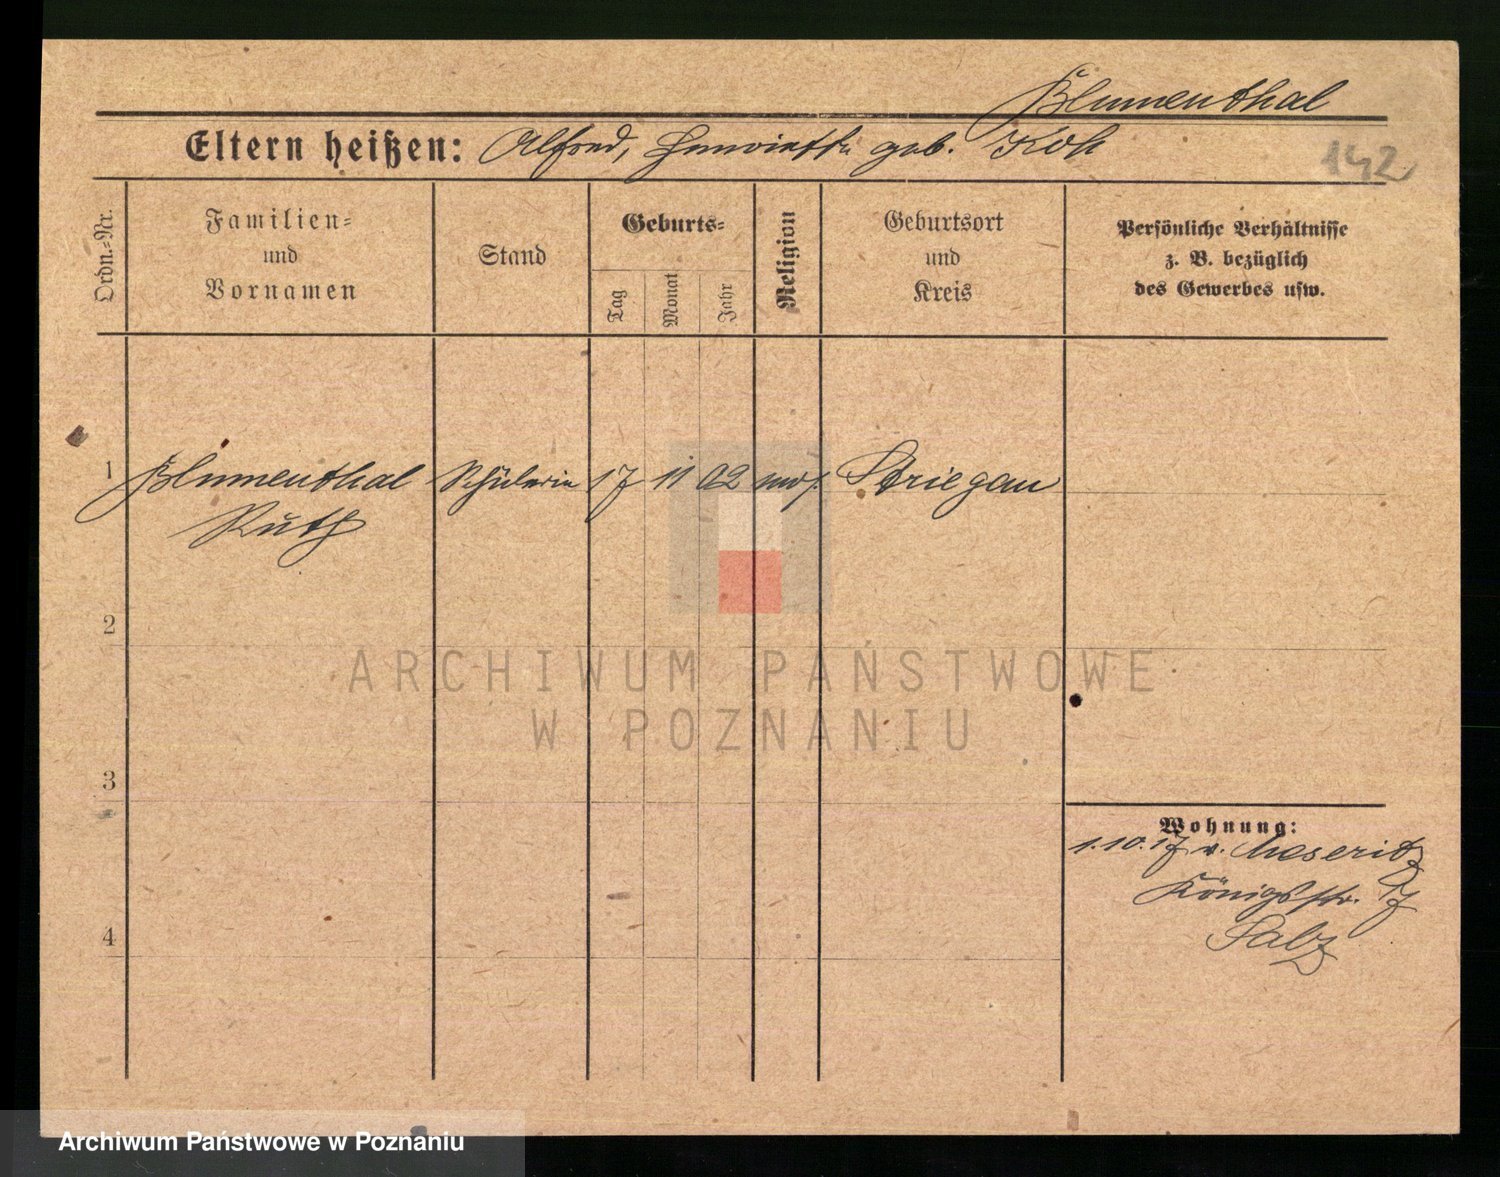 Blumenthal
Eltern heißen: Alfred, Henriette geb. Koh
142
Ordn.=Nr.
Familien=
und
Vornamen
Stand
Geburts=
Tag
Monat
Jahr
Religion
Geburtsort
und
Kreis
Persönliche Verhältnisse
z. B. bezüglich
des Gewerbes usw.
1 Blumenthal Schülerin 17 11 02 mos. Striegau
Ruth
2
ARCHIWUM PAŃSTWOWE
W POZNANIU
3
Wohnung:
1.10.17 v. Meseritz
Königsstr. 17
Salz
4
Archiwum Państwowe w Poznaniu